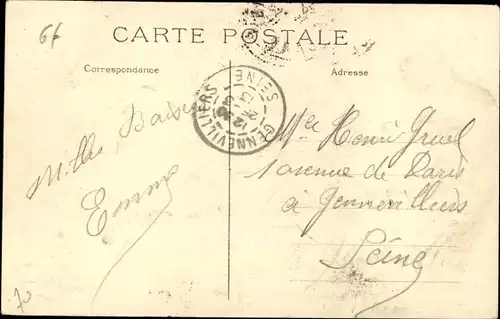 CARTE POSTALE
Correspondance
Adresse
GENNEVILLIERS
SEINE
Milles Baisers
Emma
Henri Gruel
1 avenue de Paris
à Gennevilliers
Seine